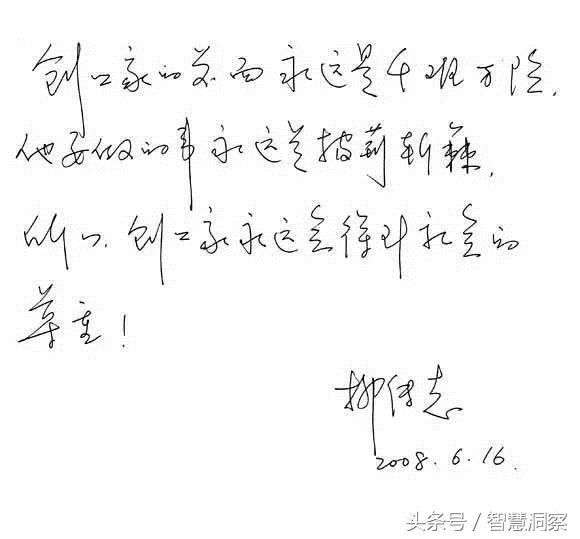 创业家的前面永远是千难万险，
他要做的事永远是披荆斩棘，
所以，创业家永远会得到社会的
尊重！
柳传志
2008.6.16.
头条号／智慧洞察